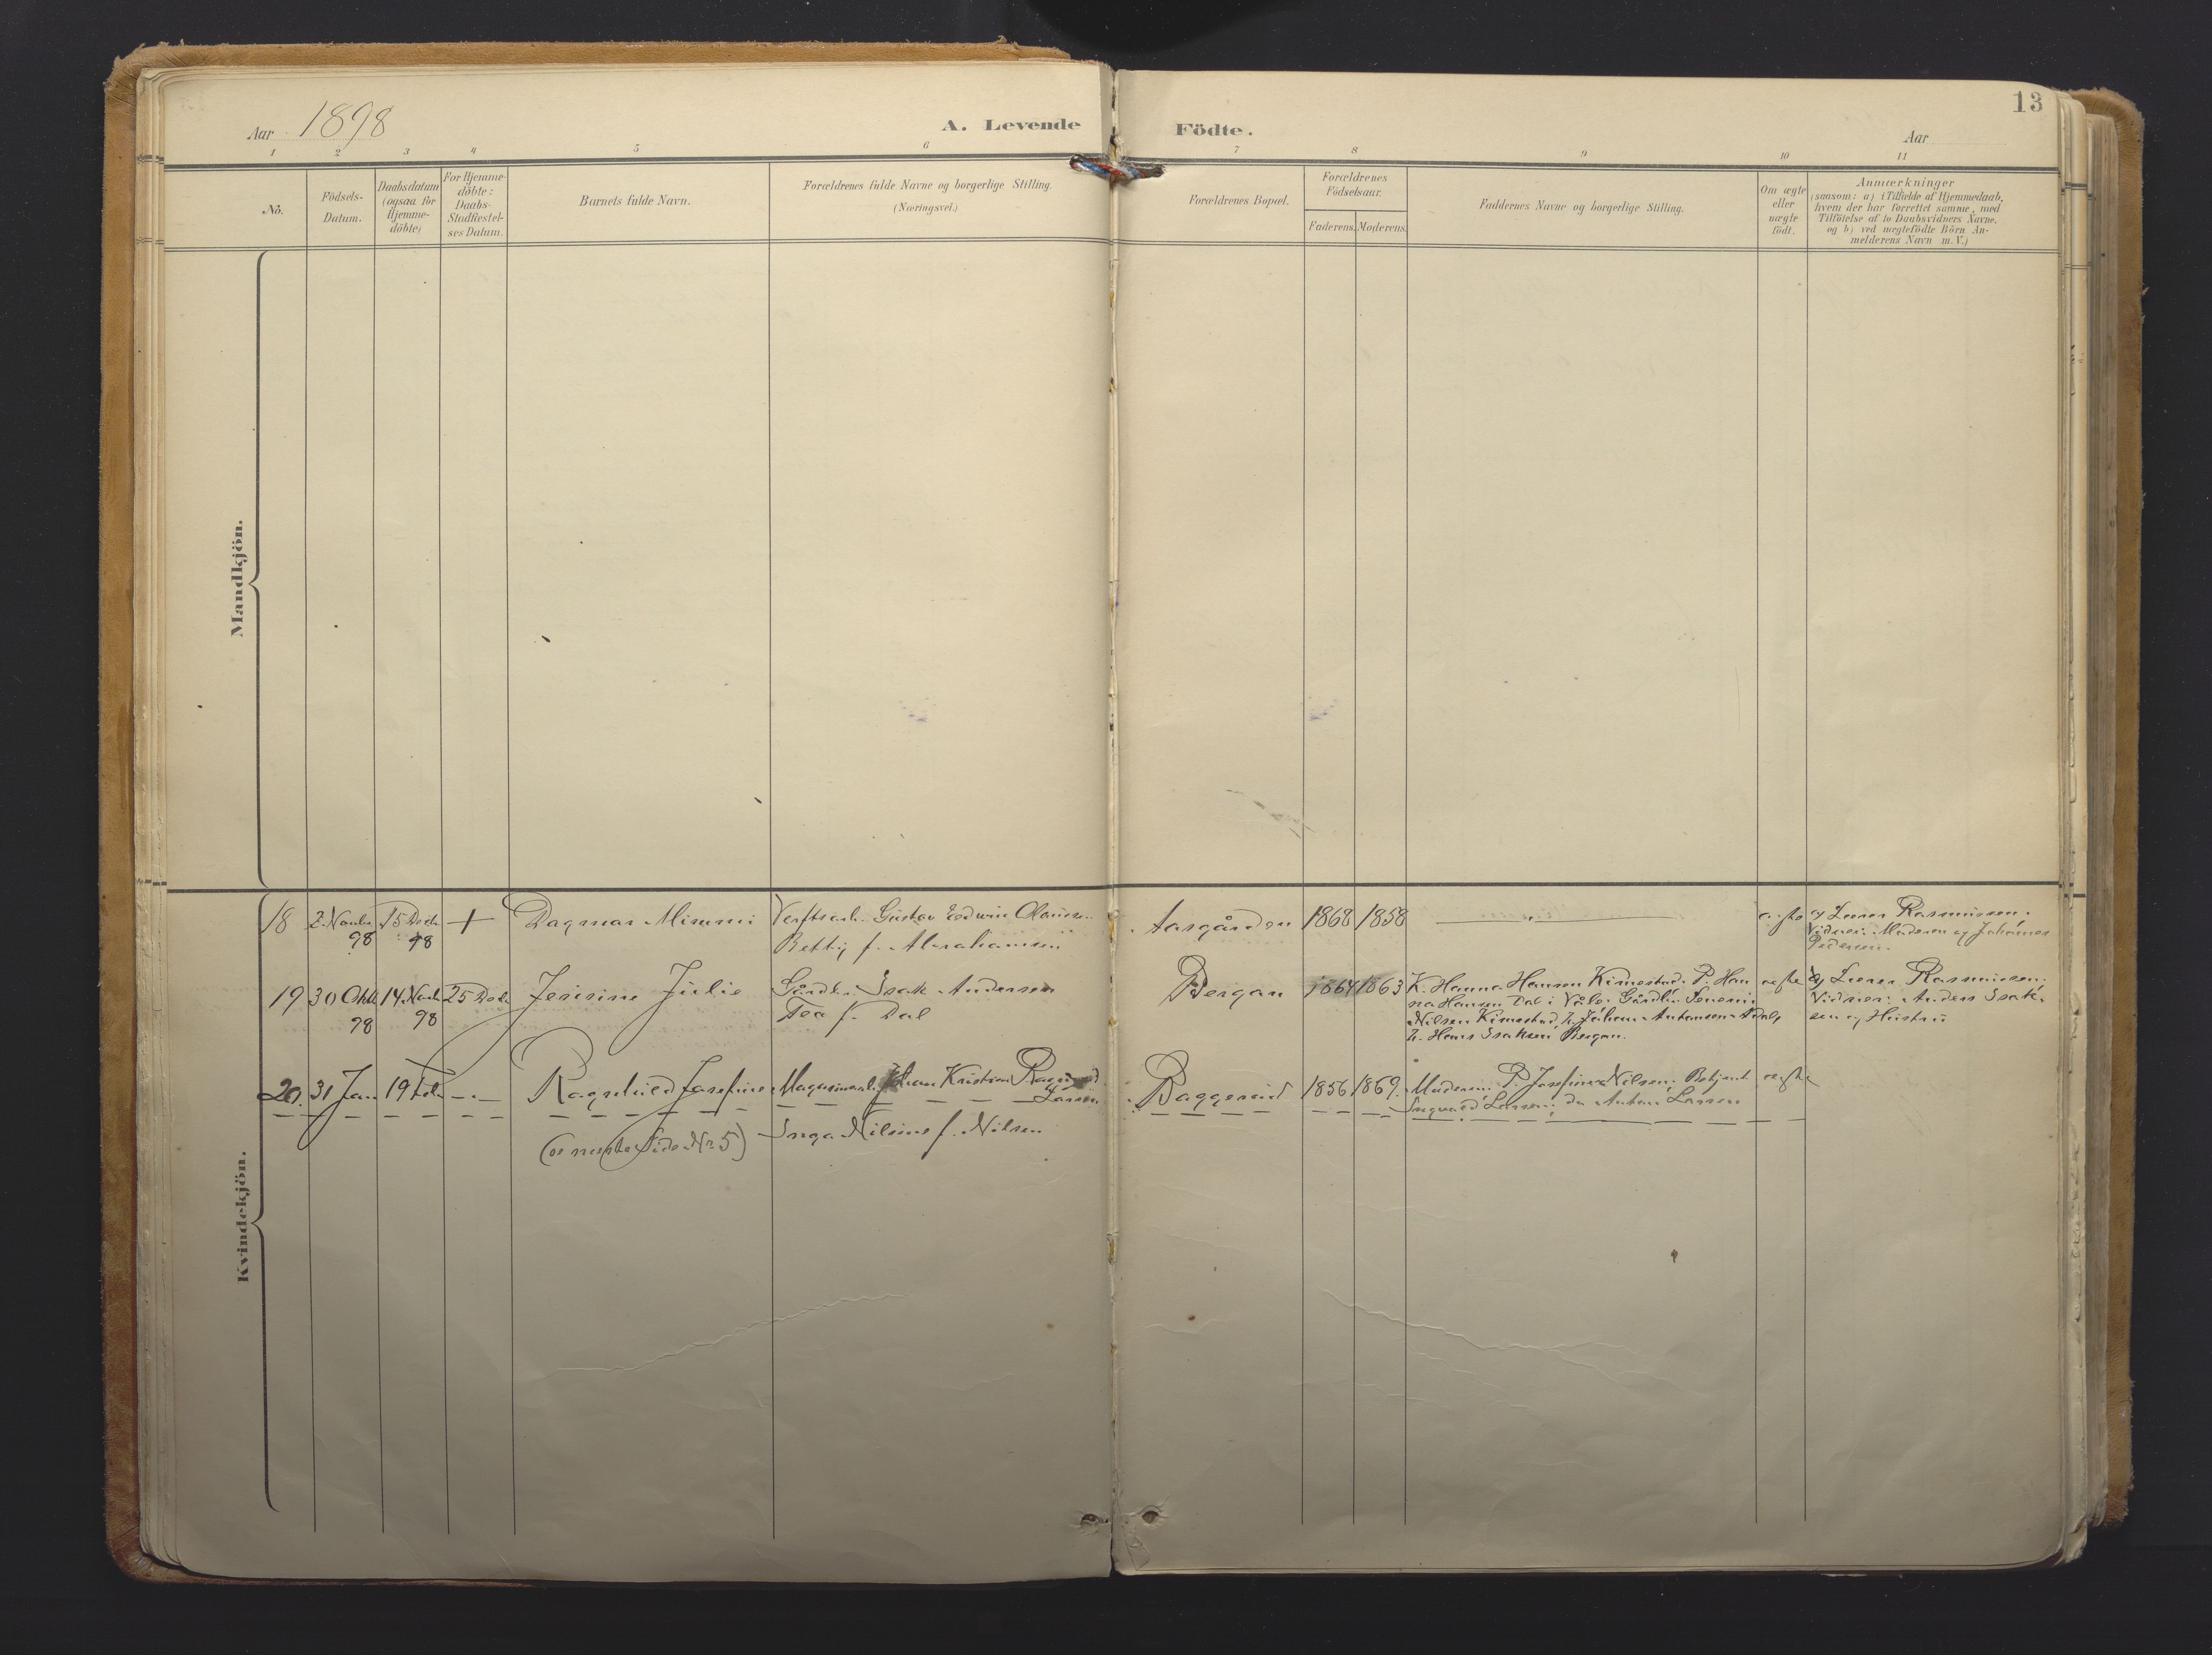 Aar 1898
A. Levende
Födte.
13
Aar
1 2 3 4 5 6 7 8 9 10 11
No.
Födsels-
Datum.
Daabsdatum
(ogsaa for
Hjemme-
döbte)
For Hjemme-
döbte:
Daabs-
Stadfæstel-
ses Datum.
Barnets fulde Navn.
Forældrenes fulde Navne og borgerlige Stilling.
(Næringsvei.)
Forældrenes Bopæl.
Forældrenes
Födselsaar.
Faderens. Moderens.
Faddernes Navne og borgerlige Stilling.
Om ægte
eller
uægte
födt.
Anmærkninger
(saasom: a) i Tilfælde af Hjemmedaab,
hvem der har forrettet samme, med
Tilföielse af to Daabsvidners Navne.
og b) ved uægtefödte Börn An-
melderens Navn m. V.)
Mandkjön.
Kvindekjön.
18
2 Novbr
98
15 Decb
98
+
Dagmar Mimmi
Verftsarb. Gustav Edwin Olausen
Betty f. Abrahamsen
Aasgården
1868
1858
ægte
Lærer Rasmussen.
Vidner: Moderen og Johannes
Pedersen.
19
30 Oktb
98
14 Novb
98
25 Decb
Jensine Julie
Gårdbr. Isak Andersen
Tea f. Dal
Bergan
1864
1863
K. Hanna Hansen Kimestad. P. Han
na Hansen Dal i Våle. Gårdbr. Severin
Nilsen Kimestad, U. Johan Antonsen Adal,
U. Hans Isaksen Bergan.
ægte
Lærer Rasmussen.
Vidner: Anders Isak-
sen og Hustru
20.
31 Jan
19 Feb
-.-
Ragnhild Josefine
(se næste Side Nr 5)
Magasinarb. Johan Kristian
Larsen
Inga Nilsine f. Nilsen
Baggerød
1856
1869.
Moderen. P. Josefine Nilsen; Betjent
Ingvald Larsen; do Anton Larsen
ægte